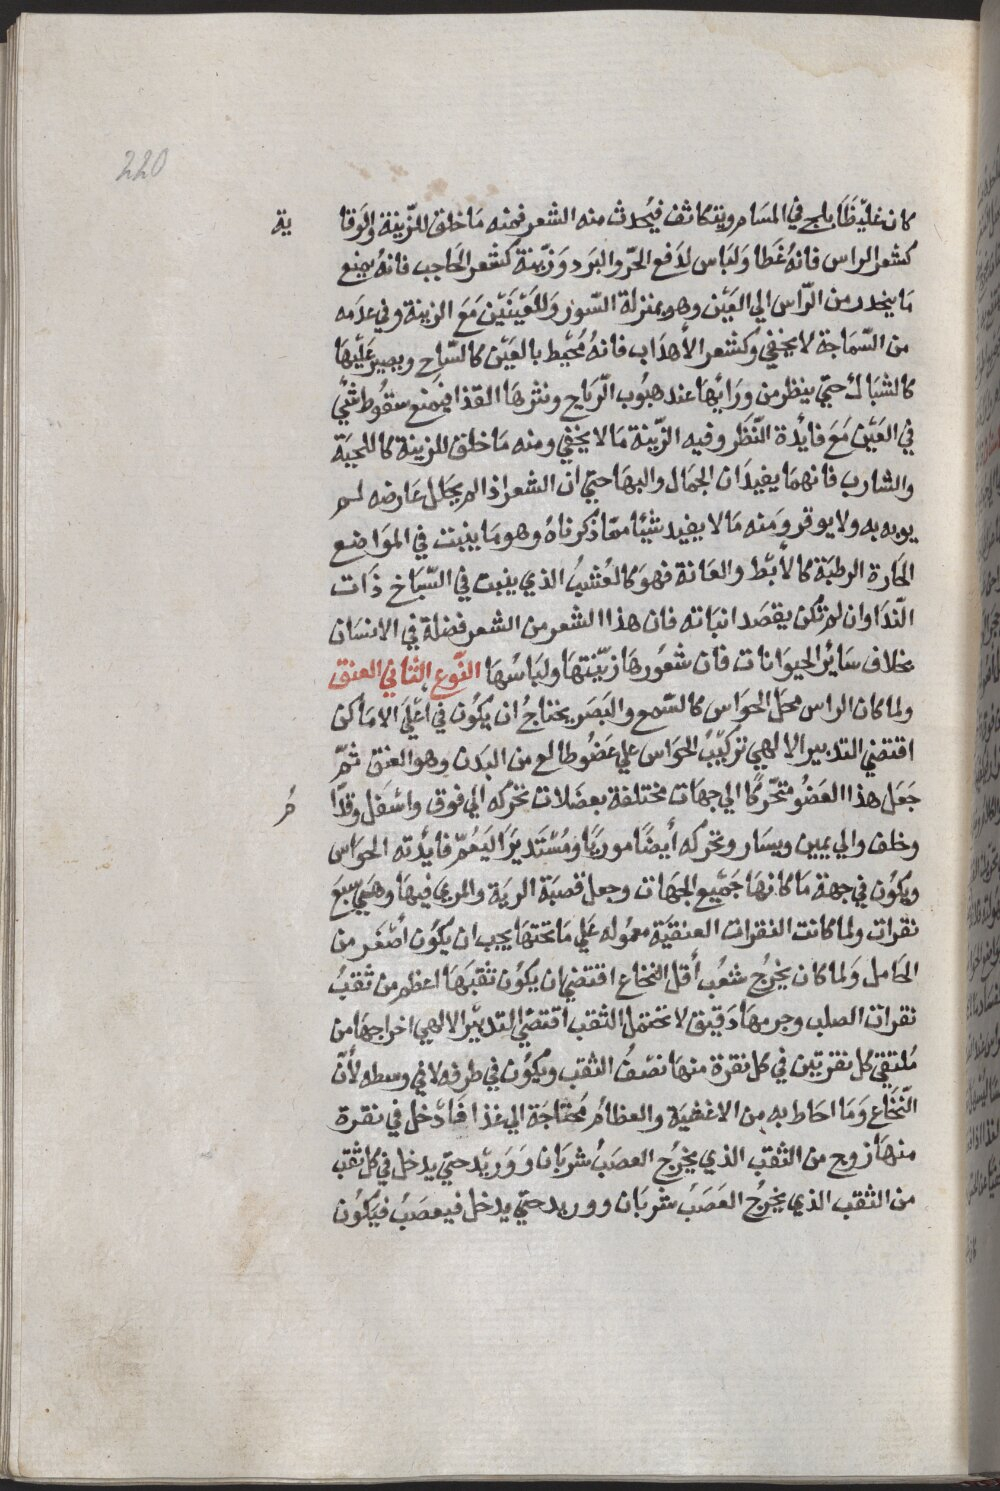 220
كان غليظا يلج في المسام ويتكاثف فيحدث منه الشعر فمنه ما خلق للزينة والوقاية
كشعر الراس فانه غطا ولباس لدفع الحر والبرد وزينة كشعر الحاجب فانه يمنع
ما ينحدر من الراس الي العين وهو بمنزلة السور وللعينين مع الزينة وفي عدمه
من السماجة لا يخفي وكشعر الأهداب فانه محيط بالعين كالسياج ويصير عليها
كالشباك حتي ينظر من ورائها عند هبوب الرياح ونثرها القذا فيمنع سقوط شئ
في العين مع فائدة النظر وفيه الزينة ما لا يخفي ومنه ما خلق للزينة كاللحية
والشارب فانهما يفيدان الجمال والبها حتي ان الشعر اذا لم يجلل عارضه لم
يوبه به ولا يوقر ومنه ما لا يفيد شئا مما ذكرناه وهو ما ينبت في المواضع
الحارة الرطبة كالأبط والعانة فهو كالعشب الذي ينبت في السباخ ذات
الندا وان لم تكن يقصد انباته فان هذا الشعر من الشعر فضلة في الانسان
بخلاف سائر الحيوانات فان شعورها زينتها ولباسها النوع الثاني العنق
ولما كان الراس محل الحواس كالسمع والبصر يحتاج ان يكون في اعلي الاماكن
اقتضي التدبير الالهي تركيب الحواس علي عضو طالع من البدن وهو العنق ثم
جعل هذا العضو متحركا الي جهات مختلفة بعضلات تحركه الي فوق واسفل وقدام
وخلف والي يمين ويسار وتحركه أيضا موربا ومستديرا ليعم فائدته الحواس
ويكون في جهة ما كانها جميع الجهات وجعل قصبة الرية والمري فيها وهي سبع
نقرات ولما كانت النقرات العنقية معموله علي ما تحتها يجب ان يكون أصغر من
الحامل ولما كان يخرج شعب أقل النخاع اقتضي ان يكون ثقبها اعظم من ثقب
نقرات الصلب وجرمها دقيق لا تحتمل الثقب اقتضي التدبير الالهي اخراجها من
ملتقي كل نقرتين في كل نقرة منها نصف الثقب ويكون في طرفه لا في وسطه لأن
النخاع وما احاط به من الاغشية والعظام محتاجة الي غذا فادخل في نقرة
منها زوج من الثقب الذي يخرج العصب شريان ووريد حتي يدخل في كل ثقب
من الثقب الذي يخرج العصب شريان ووريد حتي يدخل فيه عصب فيكون